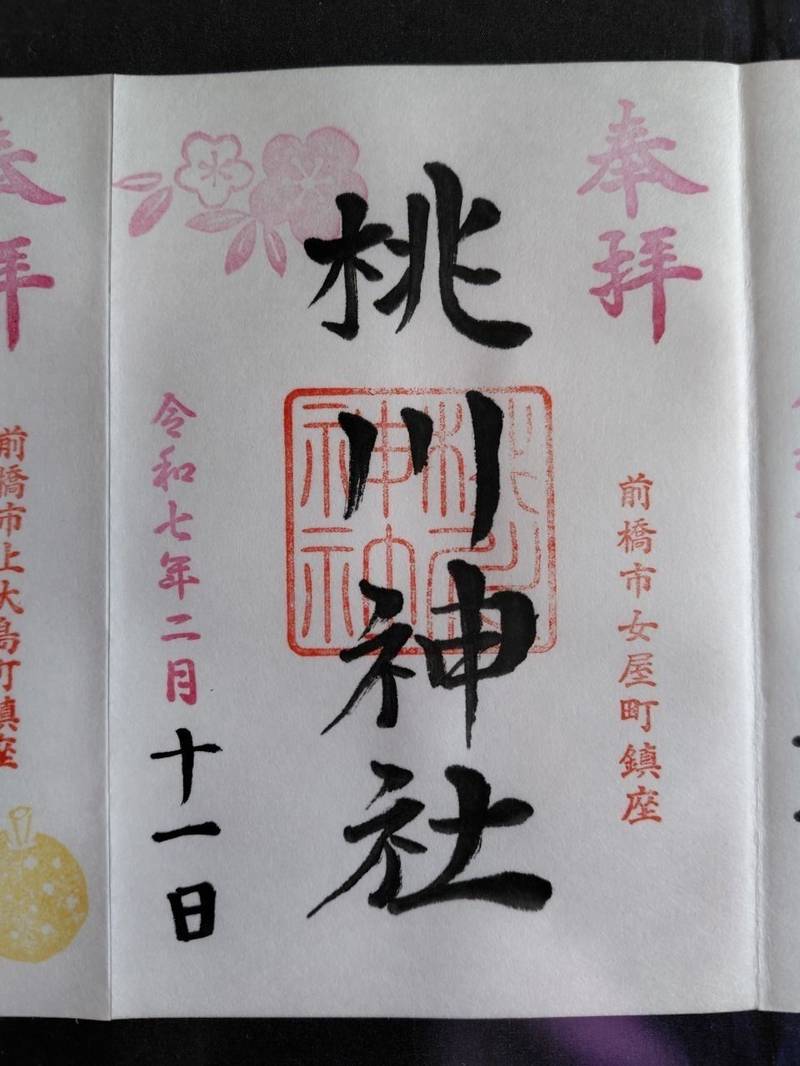 奉拝
前橋市女屋町鎮座
桃川神社
桃川
神社
令和七年二月十一日
奉拝
前橋市上大島町鎮座